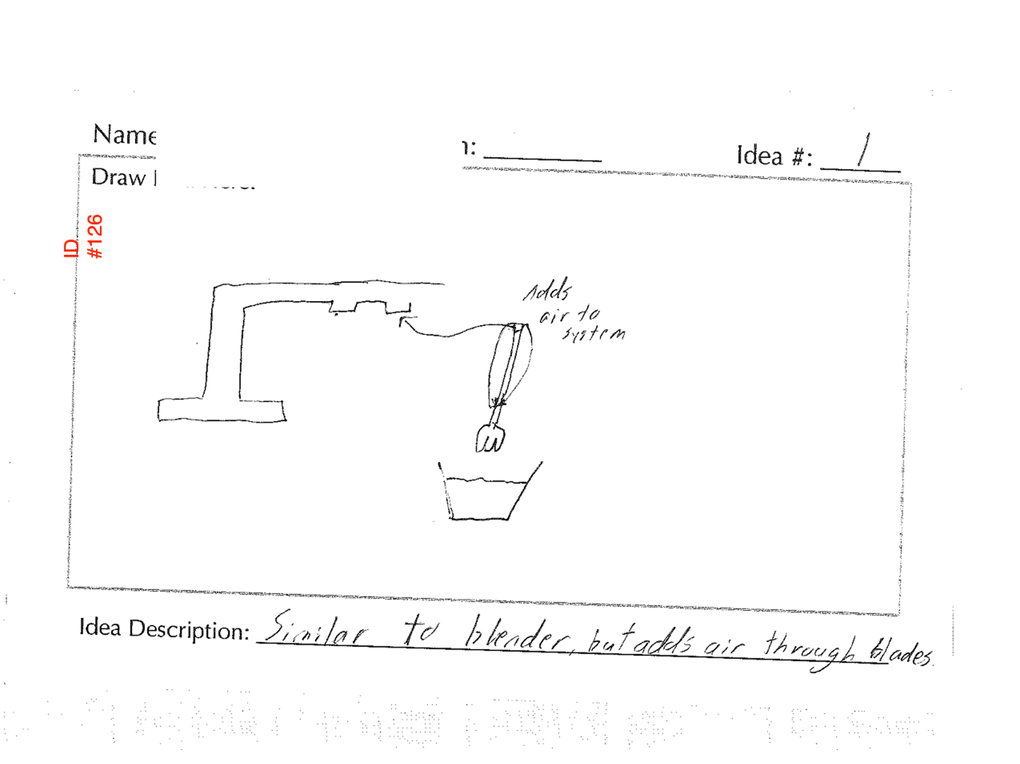 Name
: Idea #: 1
Draw
ID
#126
Adds
air to
system
Idea Description: Similar to blender, but adds air through blades.